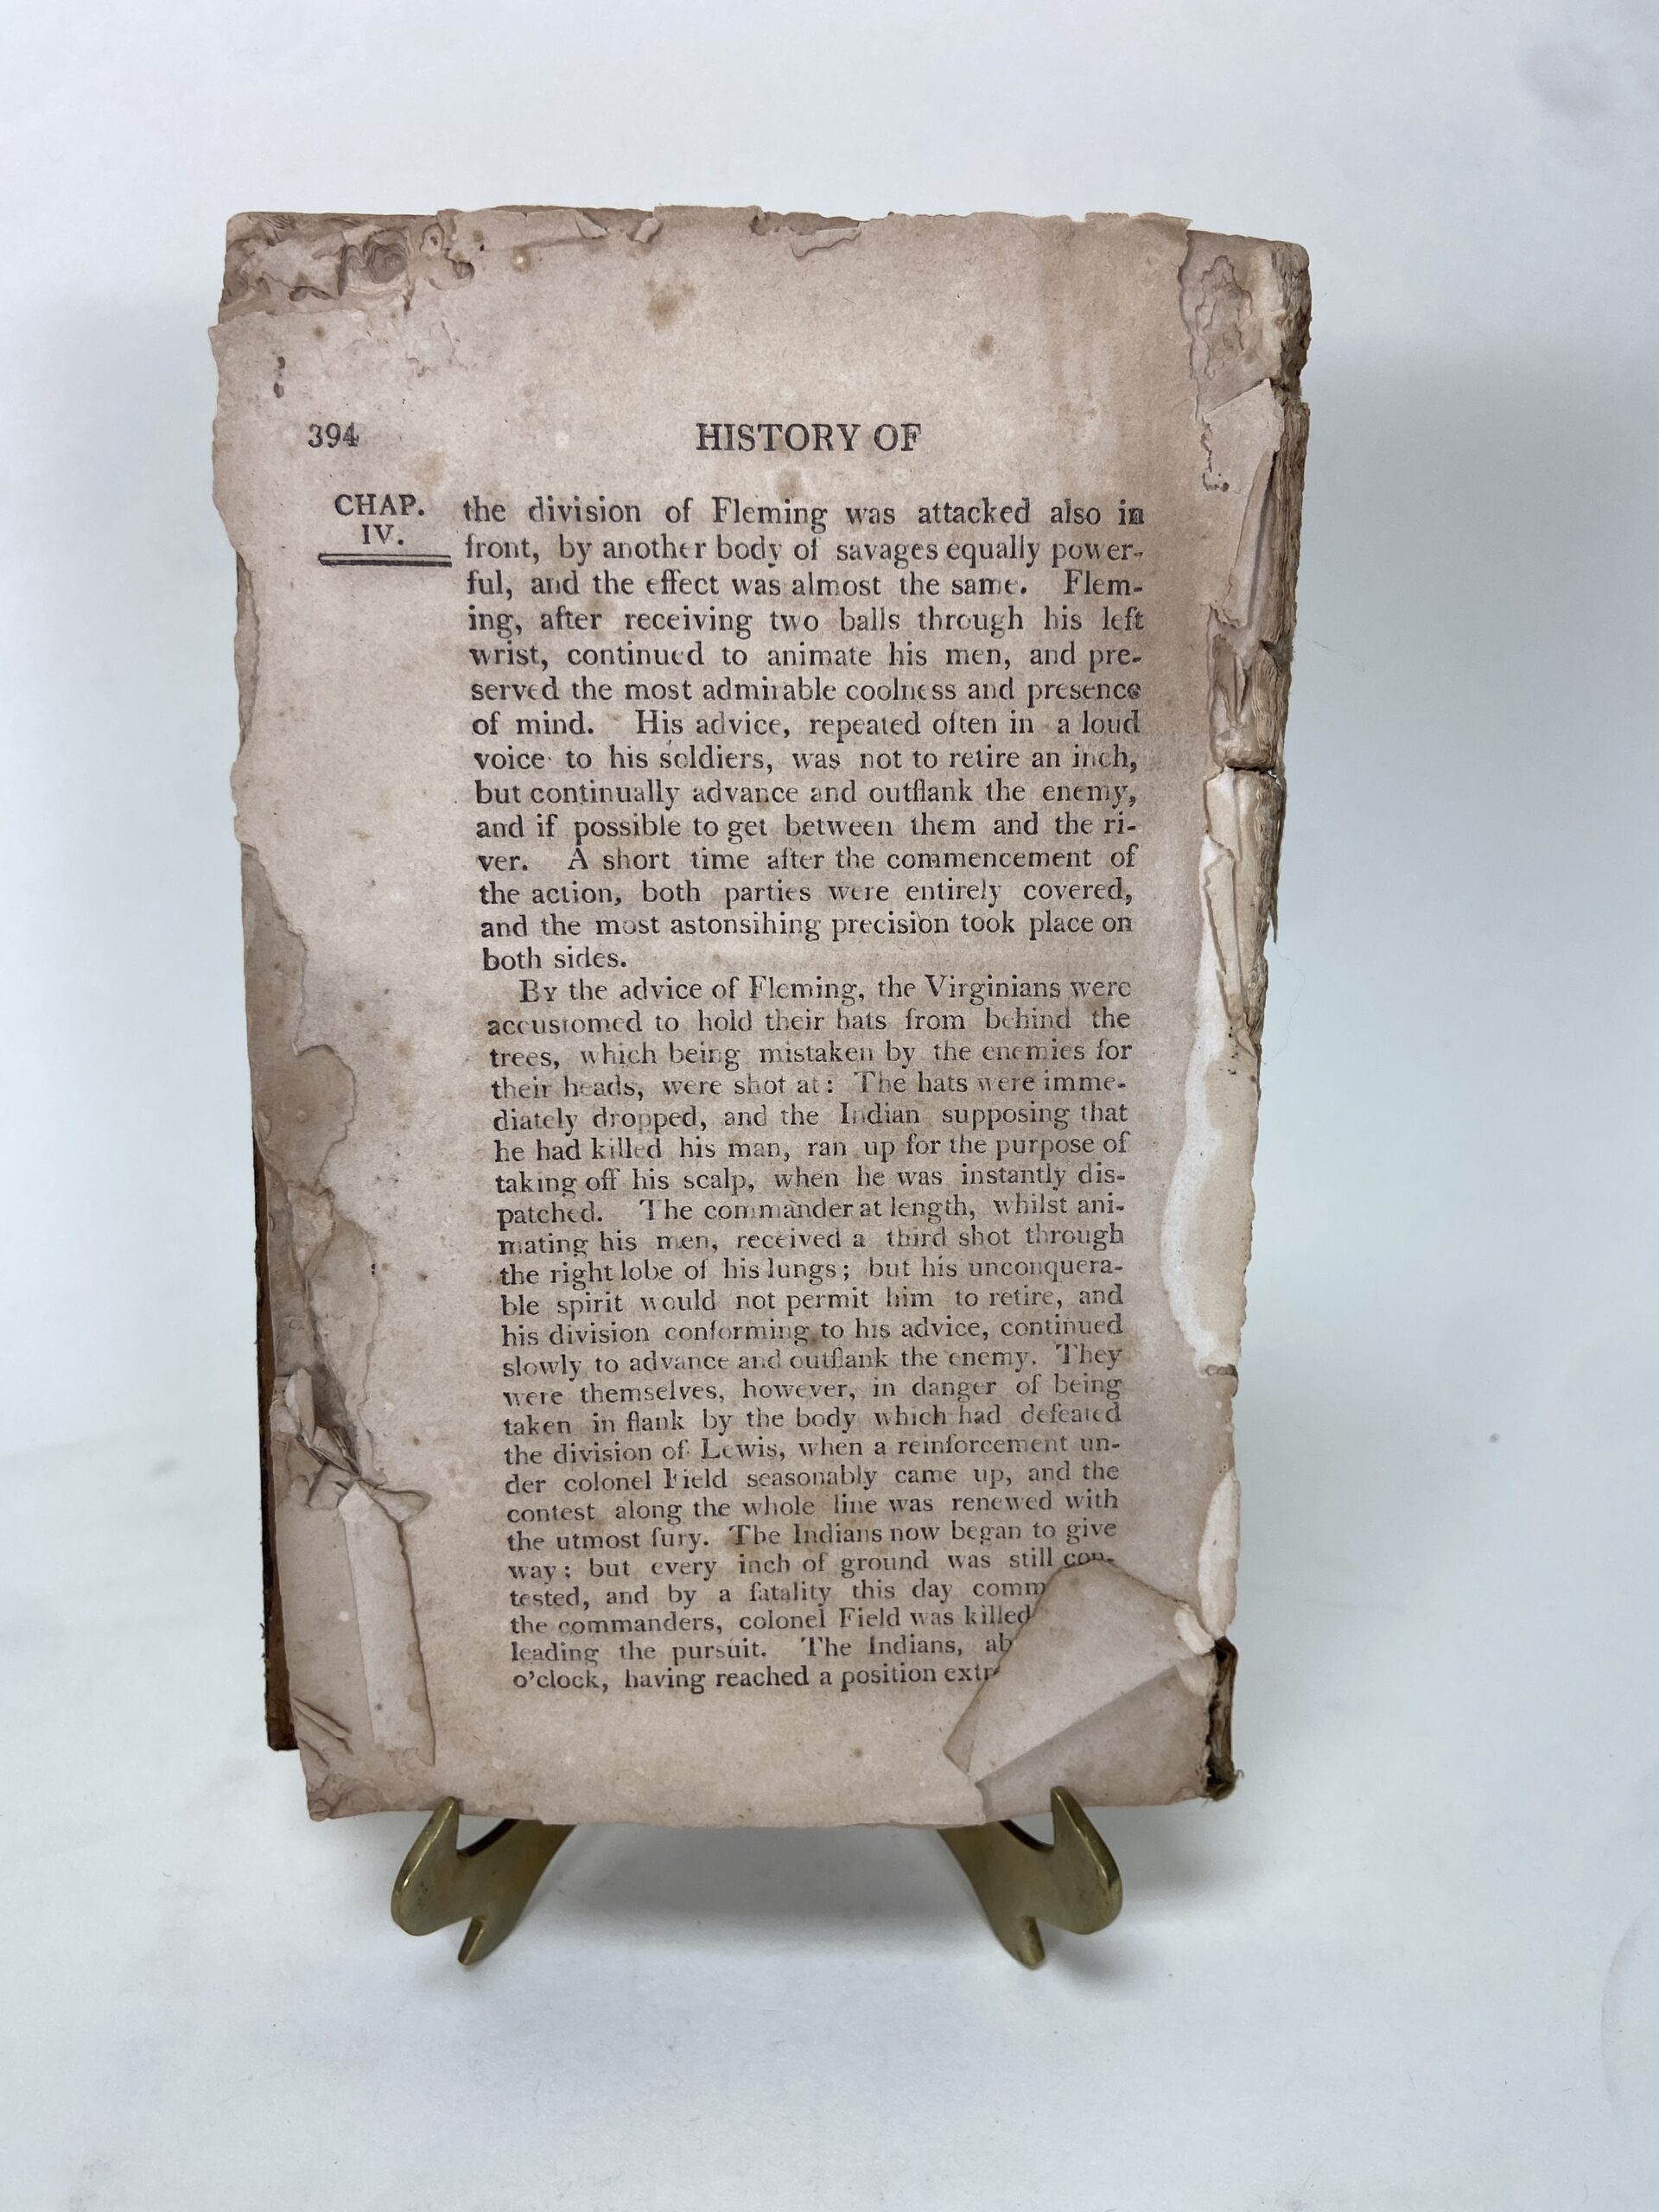 394
HISTORY OF
CHAP.
IV.
the division of Fleming was attacked also in
front, by another body of savages equally power-
ful, and the effect was almost the same. Flem-
ing, after receiving two balls through his left
wrist, continued to animate his men, and pre-
served the most admirable coolness and presence
of mind. His advice, repeated often in a loud
voice to his soldiers, was not to retire an inch,
but continually advance and outflank the enemy,
and if possible to get between them and the ri-
ver. A short time after the commencement of
the action, both parties were entirely covered,
and the most astonsihing precision took place on
both sides.
By the advice of Fleming, the Virginians were
accustomed to hold their hats from behind the
trees, which being mistaken by the enemies for
their heads, were shot at: The hats were imme-
diately dropped, and the Indian supposing that
he had killed his man, ran up for the purpose of
taking off his scalp, when he was instantly dis-
patched. The commander at length, whilst ani-
mating his men, received a third shot through
the right lobe of his lungs; but his unconquera-
ble spirit would not permit him to retire, and
his division conforming to his advice, continued
slowly to advance and outflank the enemy. They
were themselves, however, in danger of being
taken in flank by the body which had defeated
the division of Lewis, when a reinforcement un-
der colonel Field seasonably came up, and the
contest along the whole line was renewed with
the utmost fury. The Indians now began to give
way; but every inch of ground was still con-
tested, and by a fatality this day comm
the commanders, colonel Field was killed
leading the pursuit. The Indians, ab
o'clock, having reached a position extr